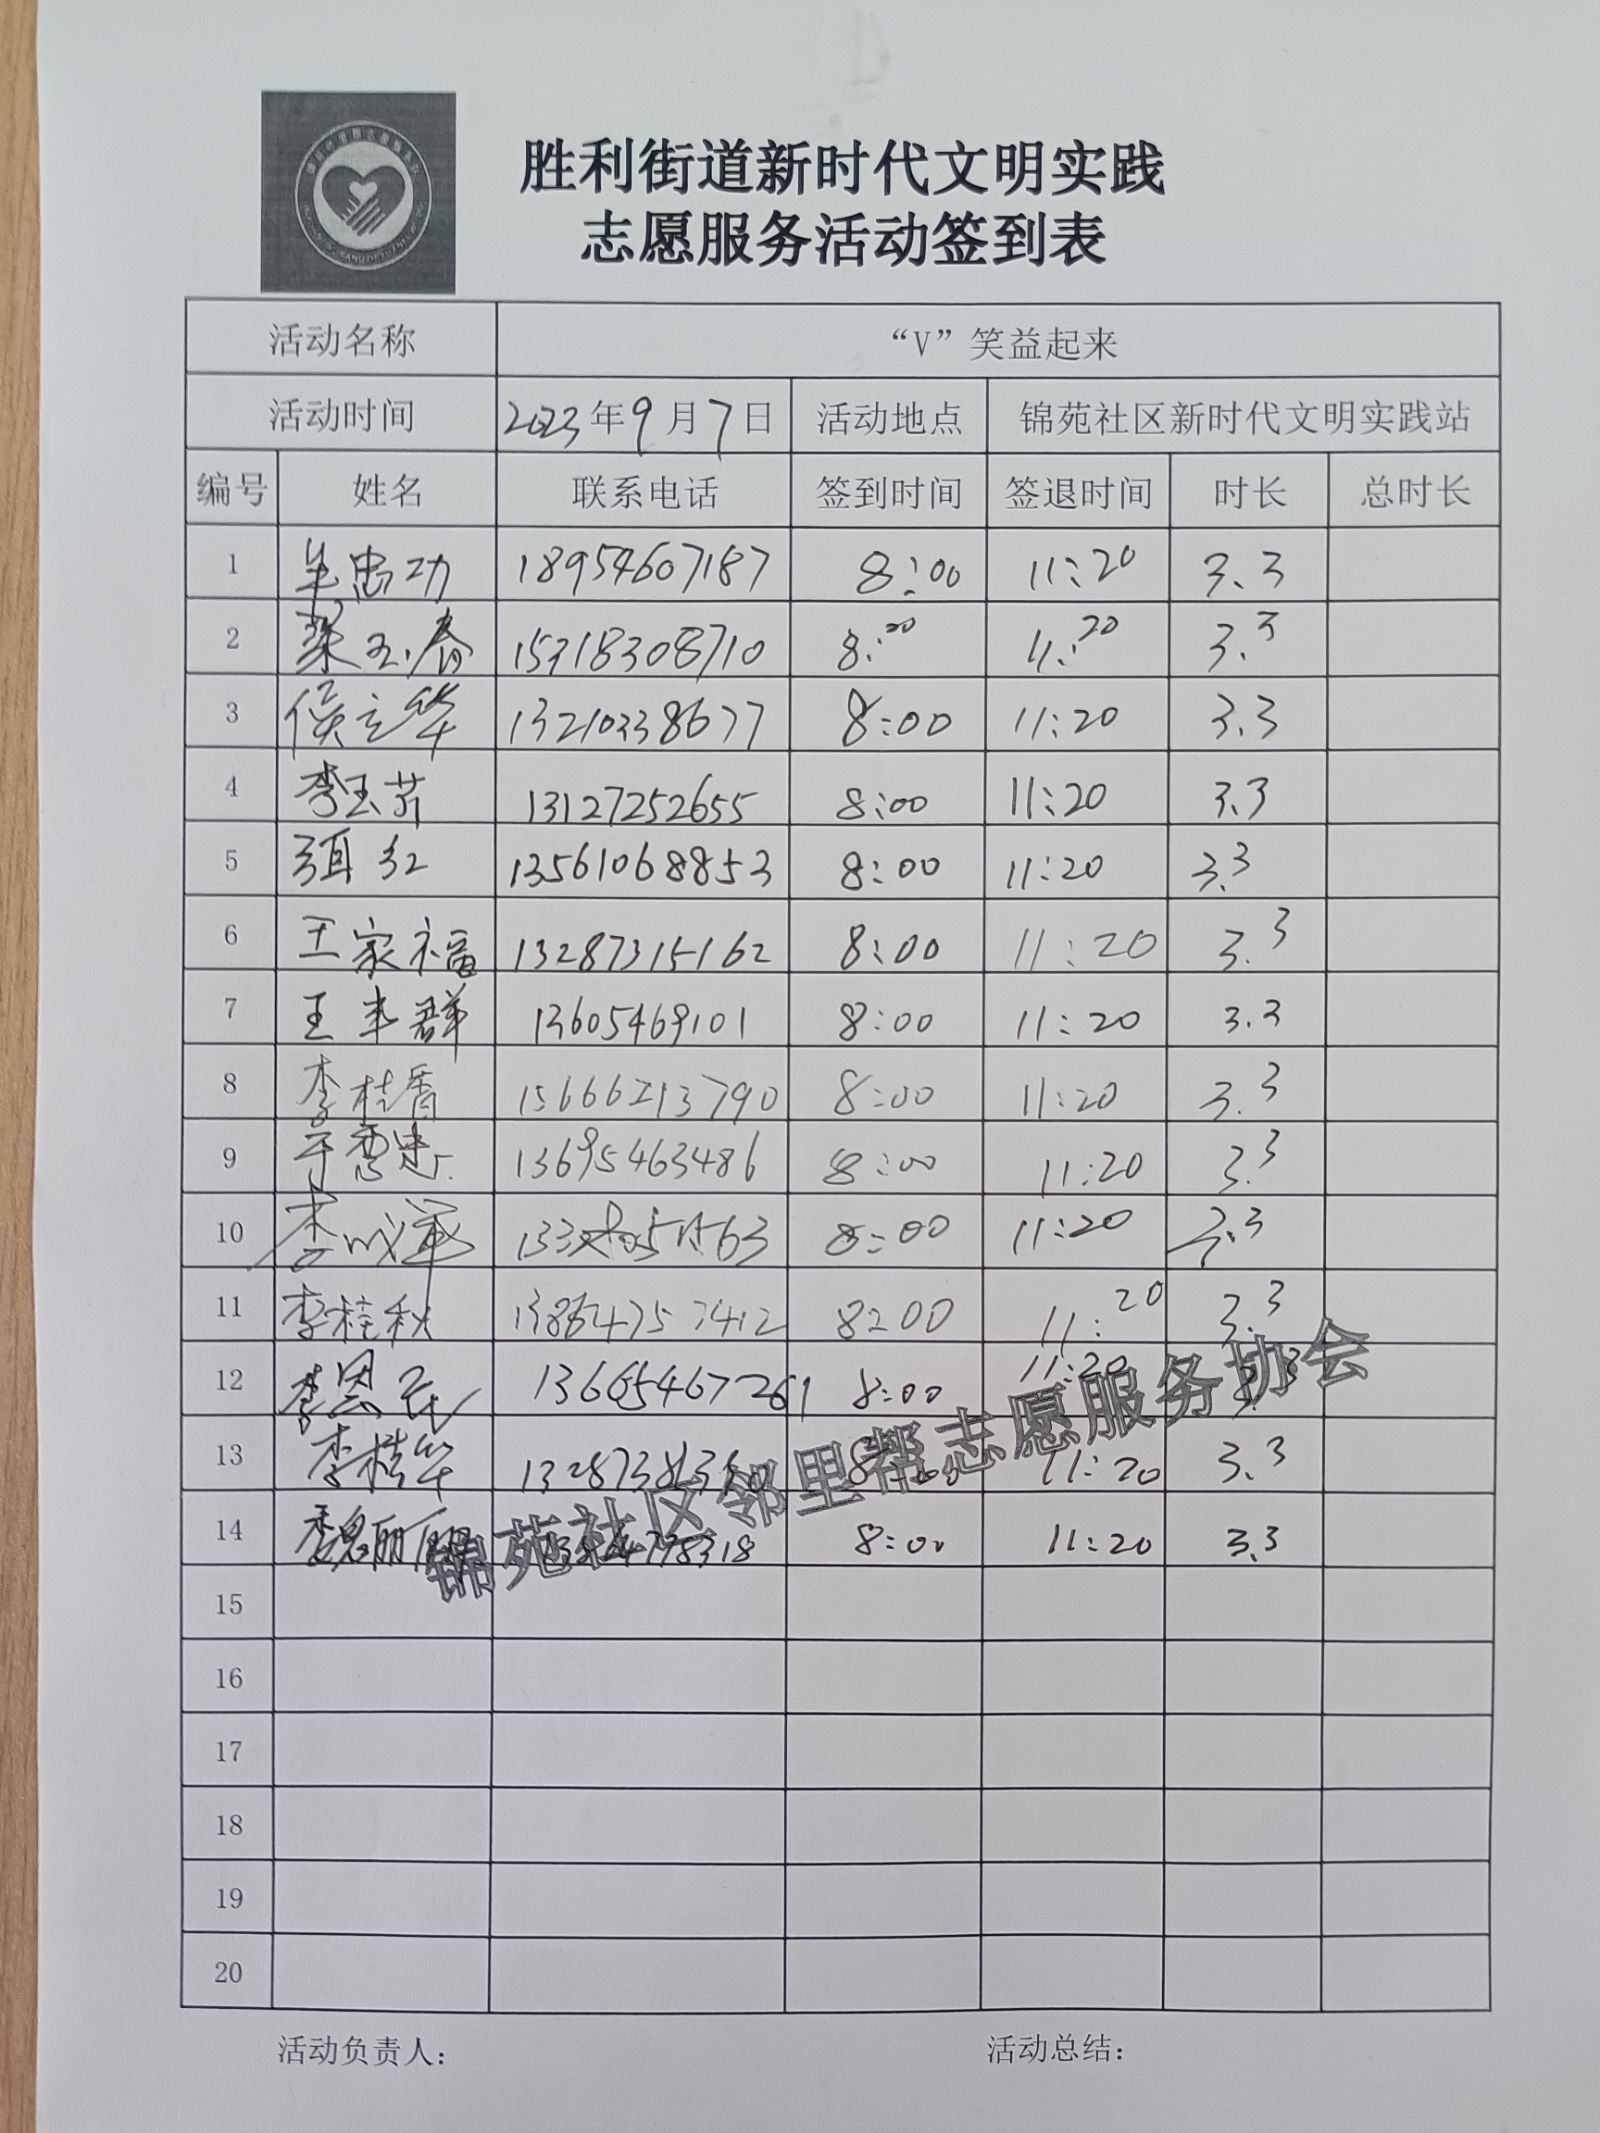 胜利街道新时代文明实践
志愿服务活动签到表
活动名称 “V”笑益起来
活动时间 2023年9月7日 活动地点 锦苑社区新时代文明实践站
编号 姓名 联系电话 签到时间 签退时间 时长 总时长
1 忠功 18954607187 8:00 11:20 3.3
2 梁玉春 15318308710 8:00 11:20 3.3
3 侯立华 13210338677 8:00 11:20 3.3
4 李玉芹 13127252655 8:00 11:20 3.3
5 红 13561068853 8:00 11:20 3.3
6 王家福 13287315162 8:00 11:20 3.3
7 王丰群 13605469101 8:00 11:20 3.3
8 李桂香 15666213790 8:00 11:20 3.3
9 13695463486 8:00 11:20 3.3
10 李 8:00 11:20 3.3
11 李桂秋 8:00 11:20 3.3
12 李恩 13665467261 8:00 11:20 3.3
13 李桂华 8:00 11:20 3.3
14 魏丽 8:00 11:20 3.3
锦苑社区邻里帮志愿服务协会
15
16
17
18
19
20
活动负责人： 活动总结：